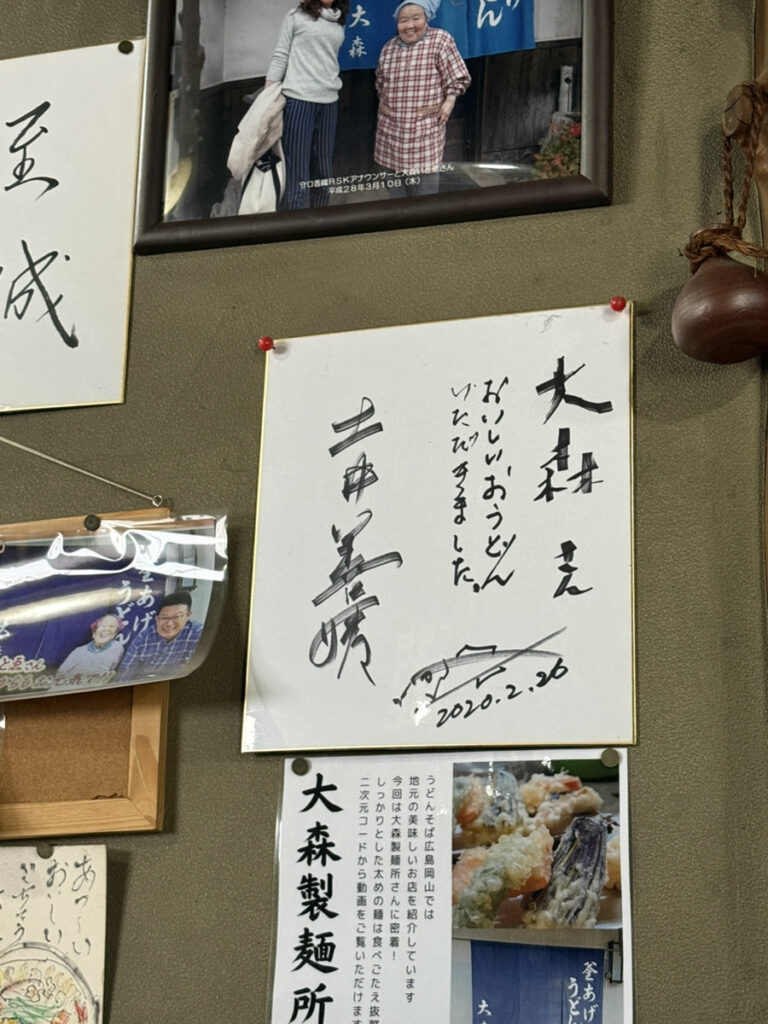 大森
どん
守口香織RSKアナウンサーと大森いと恵さん
平成28年3月10日(木)
至
誠
大森さん
おいしいおうどん
いただきました。
土井善晴
2020.2.26
釜あげ
うどん
大森製麺所
うどんそば広島岡山では
地元の美味しいお店を紹介しています
今回は大森製麺所さんに密着!
しっかりとした太めの麺は食べごたえ抜群
二次元コードから動画をご覧いただけます
釜あげ
うどん
大
あっつい
おいしい
ごちそう